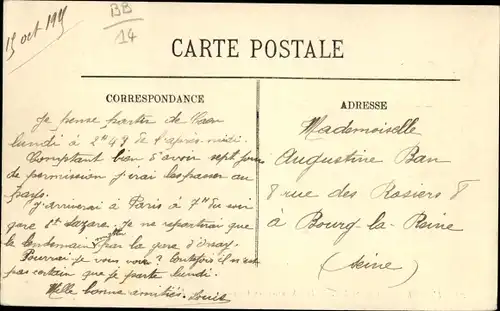 15 oct 195
BB
14
CARTE POSTALE
CORRESPONDANCE
ADRESSE
Je pense partir de Caen
lundi à 2H49 de l'après-midi.
Comptant bien d'avoir sept jours
de permission j'irai les passer au
pays.
J'arriverai à Paris à 7H du soir
gare St Lazare. Je ne repartirai que
le lendemain matin par la gare d'Orsay.
Pourrai-je vous voir? toutefois il n'est
pas certain que je parte lundi.
Mille bonne amitiés. Louis
Mademoiselle
Augustine Ban
8 rue des Rosiers 8
à Bourg-la-Reine
(Seine)